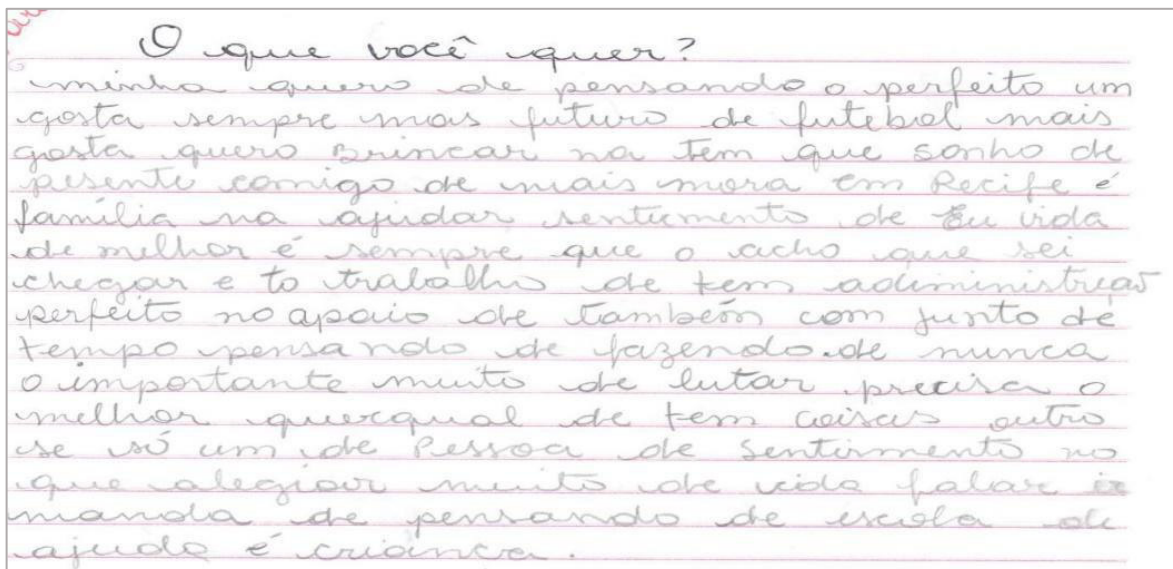 O que você quer?
minha quero de pensando o perfeito um
gosta sempre mas futuro de futebol mais
gosta quero Brincar na tem que sonho de
presente comigo de mais mora em Recife é
família na ajudar sentimento de Eu vida
de melhor é sempre que o acho que sei
chegar e to trabalho de tem
perfeito no apoio de também com junto de
tempo pensando de fazendo.de nunca
o importante muito de lutar precisa o
melhor de tem coisas outro
se só um de Pessoa de Sentimento no
que muito de vida falar
manda de pensando de escola de
ajuda é criança.